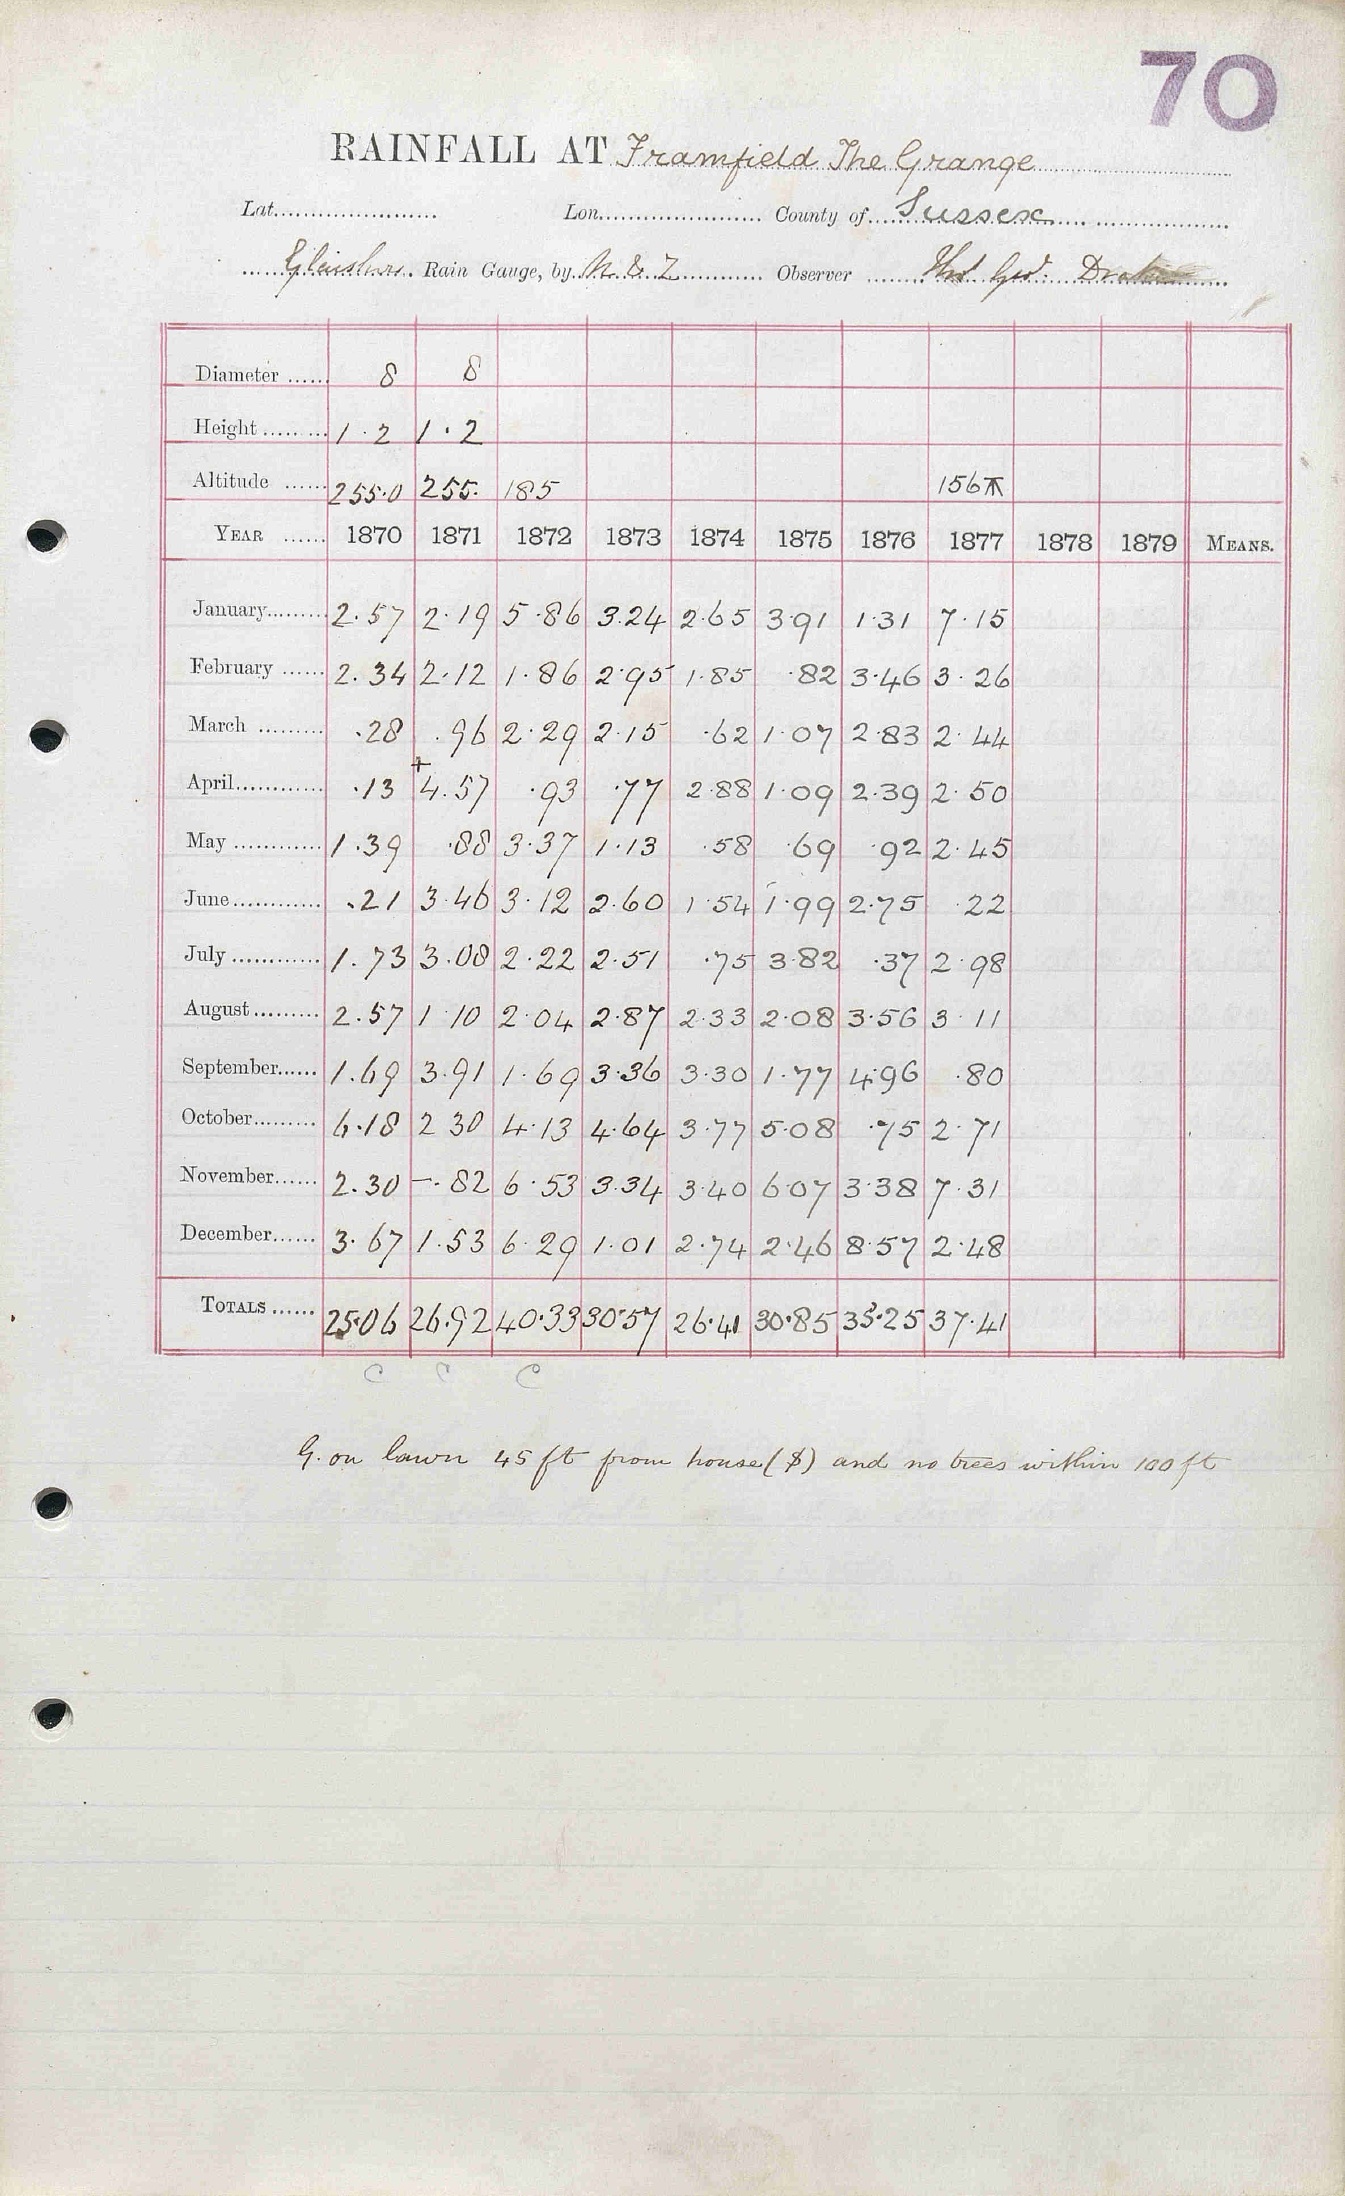 70
RAINFALL AT Framfield The Grange
Lat. Lon. County of Sussex
Glaishers Rain Gauge, by N & Z Observer Thos Geo. Drake
Diameter 8 8
Height 1·2 1·2
Altitude 255·0 255· 185 156
YEAR 1870 1871 1872 1873 1874 1875 1876 1877 1878 1879 MEANS.
January 2.57 2·19 5·86 3.24 2·65 3·91 1·31 7·15
February 2.34 2·12 1·86 2·95 1·85 ·82 3·46 3·26
March ·28 .96 2·29 2·15 ·62 1·07 2·83 2·44
April ·13 + 4.57 ·93 ·77 2·88 1·09 2·39 2·50
May 1·39 ·88 3·37 1·13 ·58 ·69 ·92 2·45
June .21 3·46 3·12 2·60 1·54 1·99 2·75 ·22
July 1.73 3·08 2·22 2·51 ·75 3·82 ·37 2·98
August 2.57 1·10 2·04 2·87 2·33 2·08 3·56 3·11
September 1.69 3·91 1·69 3·36 3·30 1·77 4·96 ·80
October 6·18 2 30 4·13 4·64 3·77 5·08 ·75 2·71
November 2.30 —·82 6·53 3·34 3·40 6·07 3·38 7·31
December 3·67 1·53 6·29 1·01 2·74 2·46 8·57 2·48
TOTALS 25·06 26·92 40·33 30·57 26·41 30·85 35·25 37·41
C C C
G. on lawn 45 ft from house (S) and no trees within 100 ft